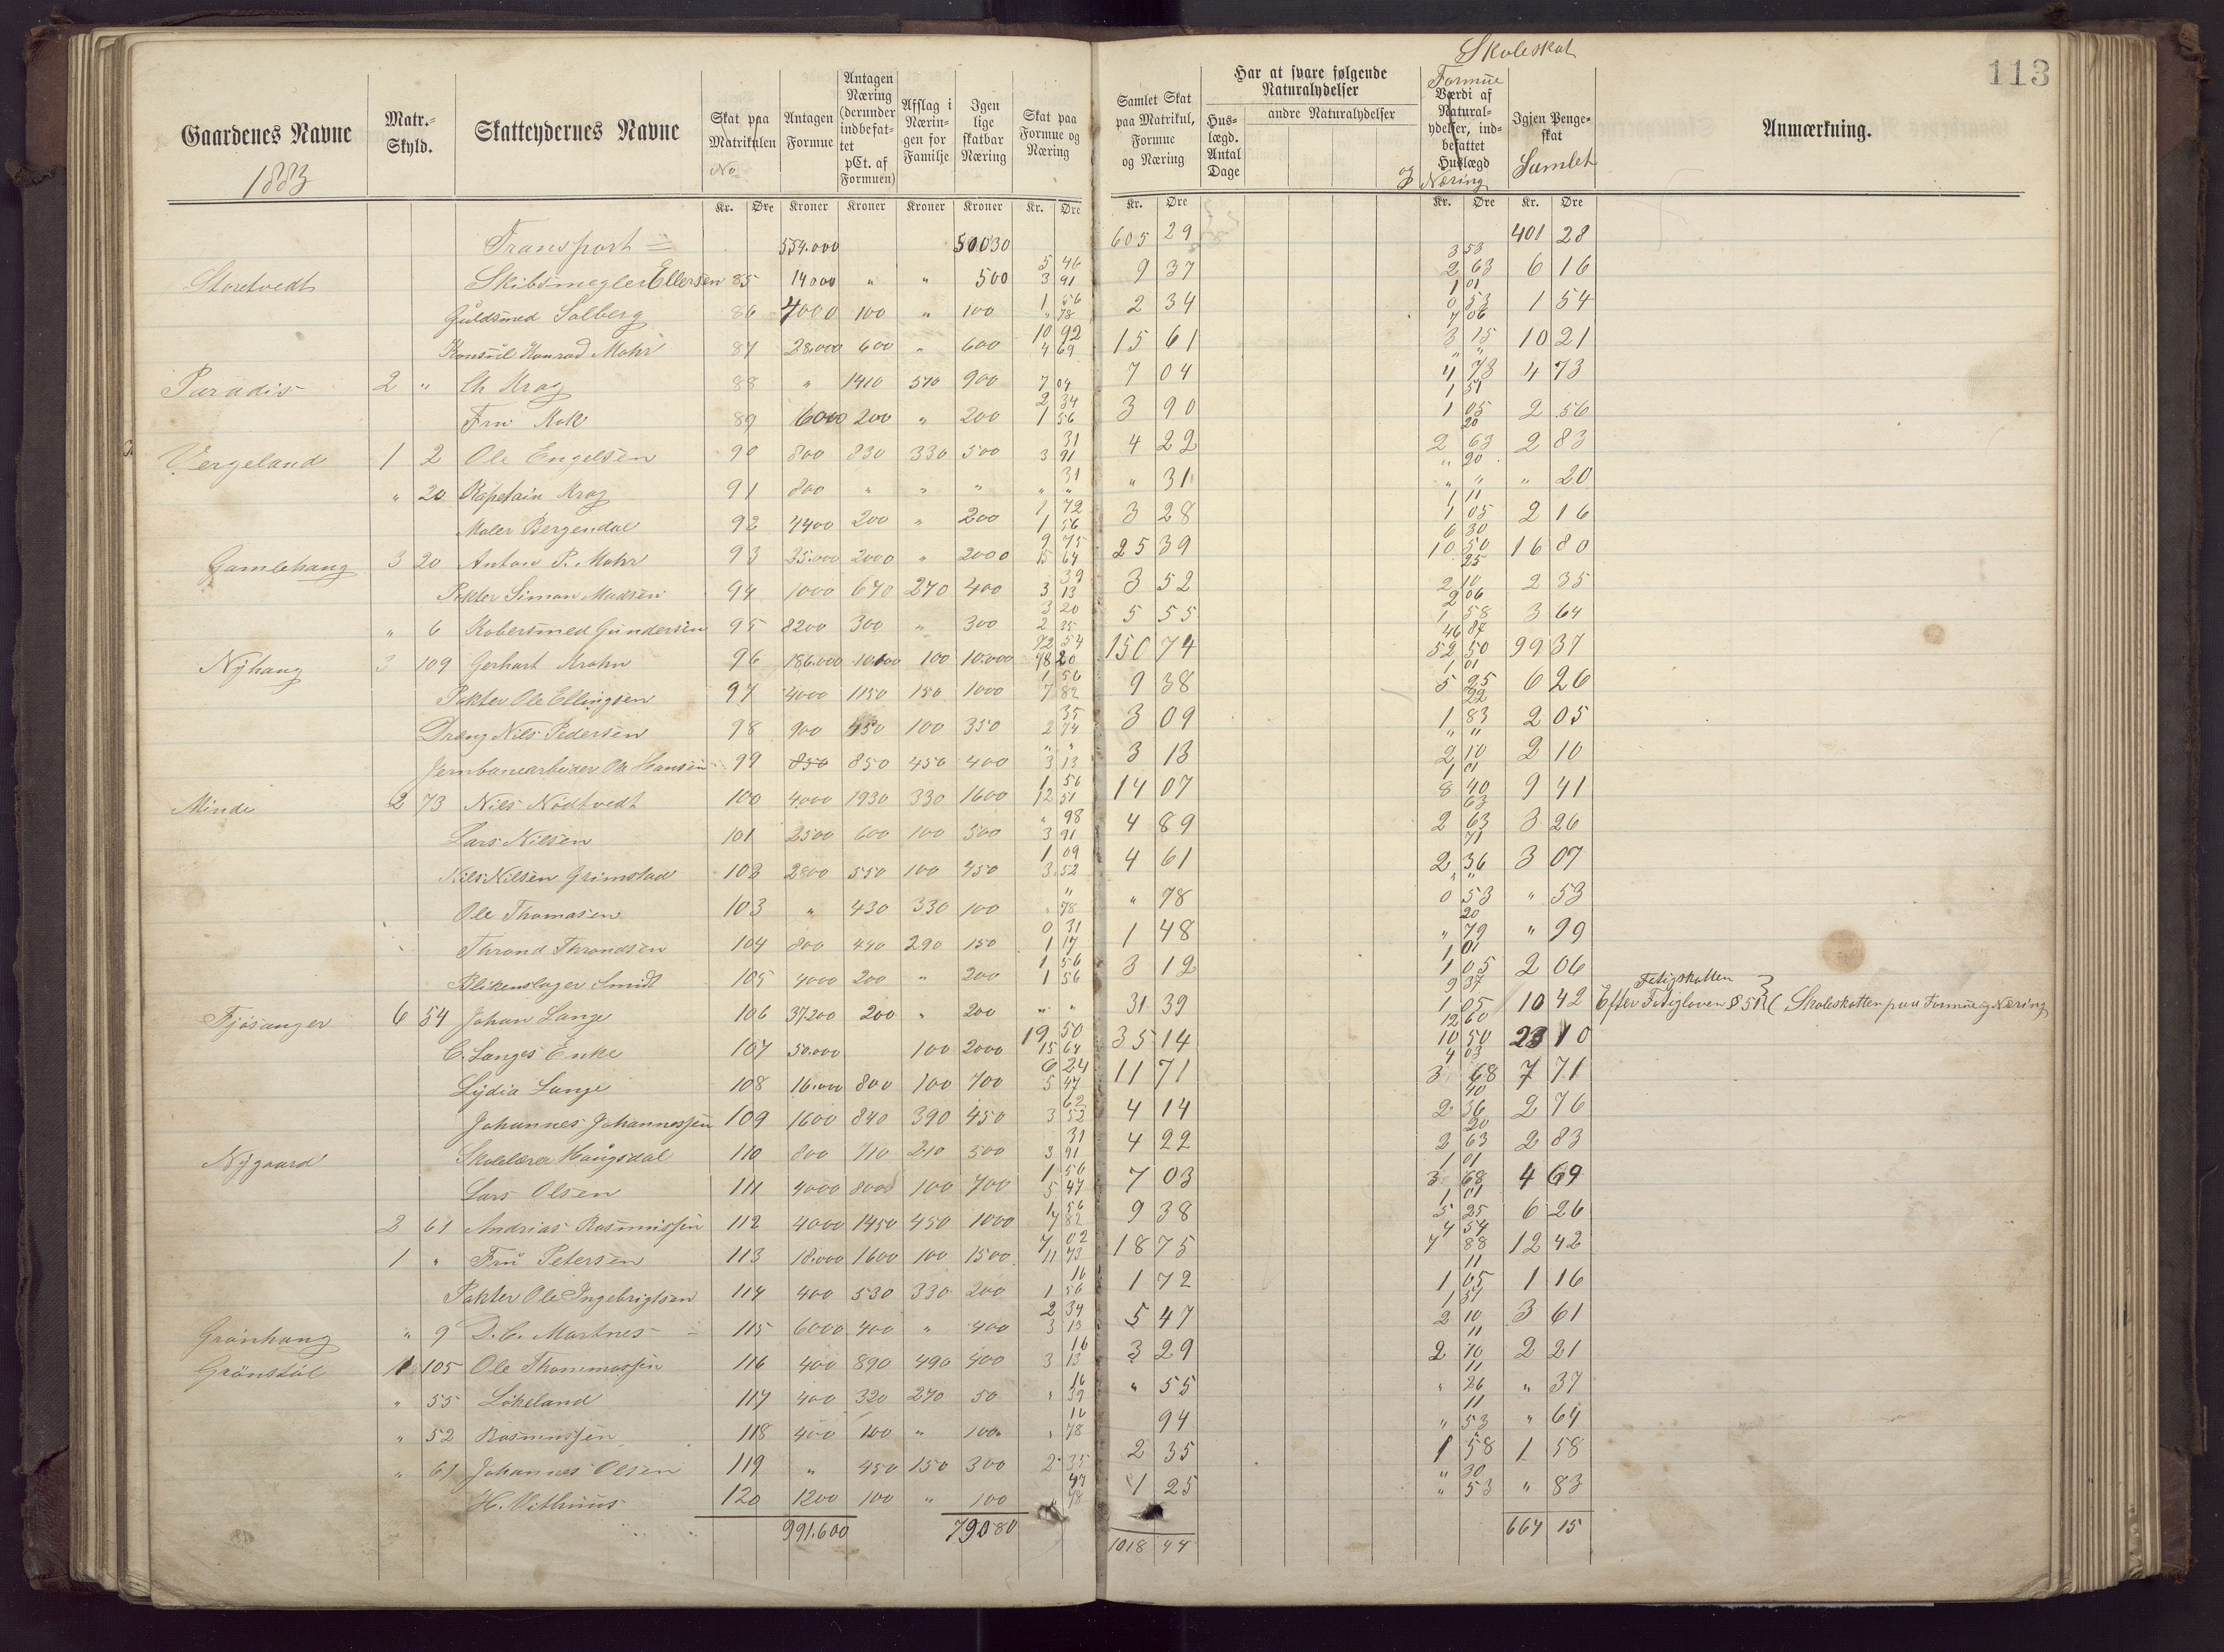 Skoleskat
113
Gaardenes Navne
1883
Matr.- Skyld.
Skatteydernes Navne
Skat paa Matrikulen
No
Antagen Formue
Antagen Næring (derunder indbefattet pCt. af Formuen)
Afslag i Næringen for Familje
Igen lige skatbar Næring
Skat paa Formue og Næring
Samlet Skat paa Matrikul, Formue og Næring
Har at svare følgende Naturalydelser
Huslægd. Antal Dage
andre Naturalydelser
Formue
Værdi af Naturalydelser, indbefattet Huslægd
og Næring
Igjen Pengeskat
Samlet
Anmærkning.
Kr. Øre Kroner Kroner Kroner Kroner Kr. Øre Kr. Øre Kr. Øre Kr. Øre
Transport = 554.000 50030 605 29 401 28
Storetvedt Skibsmegler Ellersen 85 14000 " " 500 5 46 3 91 9 37 3 53 2 63 6 16
Guldsmed Solberg 86 4000 100 " 100 1 56 " 78 2 34 1 01 0 53 1 54
Konsul Konrad Mohr 87 28000 600 " 600 10 92 4 69 15 61 7 06 3 15 10 21
Paradis 2 " Ch Krag 88 " 1410 510 900 7 04 7 04 " " 4 73 4 73
Fru Rok 89 6000 200 " 200 2 34 1 56 3 90 1 51 1 05 2 56
Vergeland 1 2 Ole Engelsen 90 800 830 330 500 31 3 91 4 22 20 2 63 2 83
" 20 Kaptain Krag 91 800 " " " 31 " " " 31 " 20 " " " 20
Maler Bergendal 92 4400 200 " 200 1 72 1 56 3 28 1 11 1 05 2 16
Gamlehaug 3 20 Anton P. Mohr 93 25.000 2000 " 2000 9 75 15 64 25 39 6 30 10 50 16 80
Pakter Simon Madsen 94 1000 670 270 400 39 3 13 3 52 25 2 10 2 35
" 6 Kobersmed Gundersen 95 8200 300 " 300 3 20 2 35 5 55 2 06 1 58 3 64
Nyhaug 3 109 Gerhart Krohn 96 186.000 10100 100 10.000 72 54 78 20 150 74 46 87 52 50 99 37
Pakter Ole Ellingsen 97 4000 1150 150 1000 1 56 7 82 9 38 1 01 5 25 6 26
Dræng Nils Pedersen 98 900 450 100 350 35 2 74 3 09 22 1 83 2 05
Jernbanearbeider Ole Hansen 99 850 850 450 400 " " 3 13 3 13 " " 2 10 2 10
Minde 2 73 Nils Nødtvedt 100 4000 1930 330 1600 1 56 12 51 14 07 1 01 8 40 9 41
Lars Nilsen 101 2500 600 100 500 " 98 3 91 4 89 63 2 63 3 26
Nils Nilsen Grimstad 102 2800 550 100 450 1 09 3 52 4 61 71 2 36 3 07
Ole Thomasen 103 " 430 330 100 " " 78 " 78 " " 0 53 " 53
Thrond Throndsen 104 800 440 290 150 0 31 1 17 1 48 20 " 79 " 99
Blikenslager Smidt 105 4000 200 " 200 1 56 1 56 3 12 1 01 1 05 2 06
Fjøsanger 6 54 Johan Lange 106 37200 200 " 200 " " 31 39 9 37 1 05 10 42 Efter Fatigloven § 51 { Fatigskatten Skoleskatten paa Formue og Næring
C. Langes Enke 107 50.000 100 2000 19 50 15 64 35 14 12 60 10 50 23 10
Lydia Lange 108 16.000 800 100 700 6 24 5 47 11 71 4 03 3 68 7 71
Johannes Johannessen 109 1600 840 390 450 62 3 52 4 14 40 2 36 2 76
Nygaard Skolelærer Haugsdal 110 800 710 210 500 31 3 91 4 22 20 2 63 2 83
Lars Olsen 111 4000 800 100 700 1 56 5 47 7 03 1 01 3 68 4 69
2 61 Andrias Rasmussen 112 4000 1450 450 1000 1 56 7 82 9 38 1 01 5 25 6 26
1 " Fru Petersen 113 18.000 1600 100 1500 7 02 11 73 18 75 4 54 7 88 12 42
Pakter Ole Ingebrigtsen 114 400 530 330 200 16 1 56 1 72 11 1 05 1 16
Grønhaug " 9 D. C. Martnes 115 6000 400 " 400 2 34 3 13 5 47 1 51 2 10 3 61
Grønstøl 1 105 Ole Thommassen 116 400 890 490 400 16 3 13 3 29 11 2 10 2 21
" 55 Løkeland 117 400 320 270 50 16 " 39 " 55 11 " 26 " 37
" 52 Rasmussen 118 400 100 " 100 16 " 78 94 11 " 53 " 64
" 61 Johannes Olsen 119 " 450 150 300 2 35 2 35 1 58 1 58
H. Vethuus 120 1200 100 " 100 47 " 78 1 25 " 30 " 53 " 83
991.600 79080 1018 44 664 15